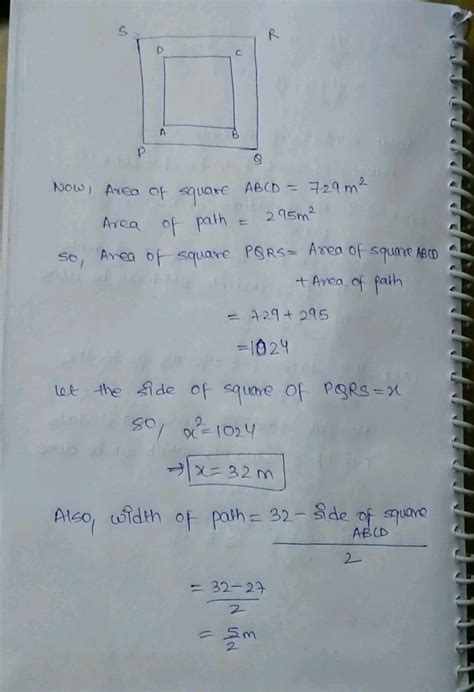 S R
D C
A B
P Q
Now, Area of square ABCD = 729m²
Area of path = 295m²
so, Area of square PQRS = Area of square ABCD
+ Area of path
= 729 + 295
= 1024
Let the side of square of PQRS = x
so, x² = 1024
⇒ x = 32 m
Also, width of path = 32 - side of square
ABCD
2
= 32 - 27
2
= 5/2 m